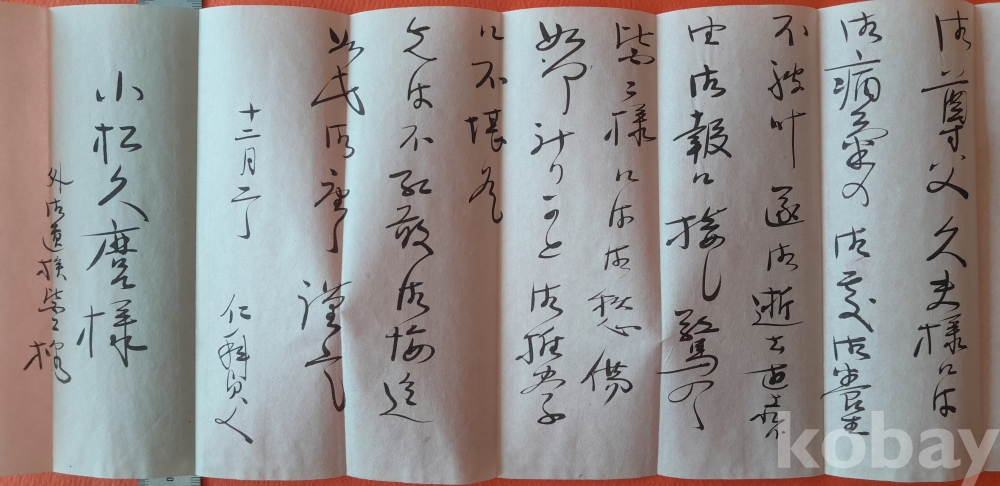 御尊父久夫様には
御病氣の御処御養生
不被叶遂御逝去
由御報に接し驚
皆々様には御愁傷
如何計りかと御推察
に不堪
先は不取敢御悔迄
如此御座候 謹言
十二月二日
仁科貞人
小松久麿様
外御遺族皆々様
kobay